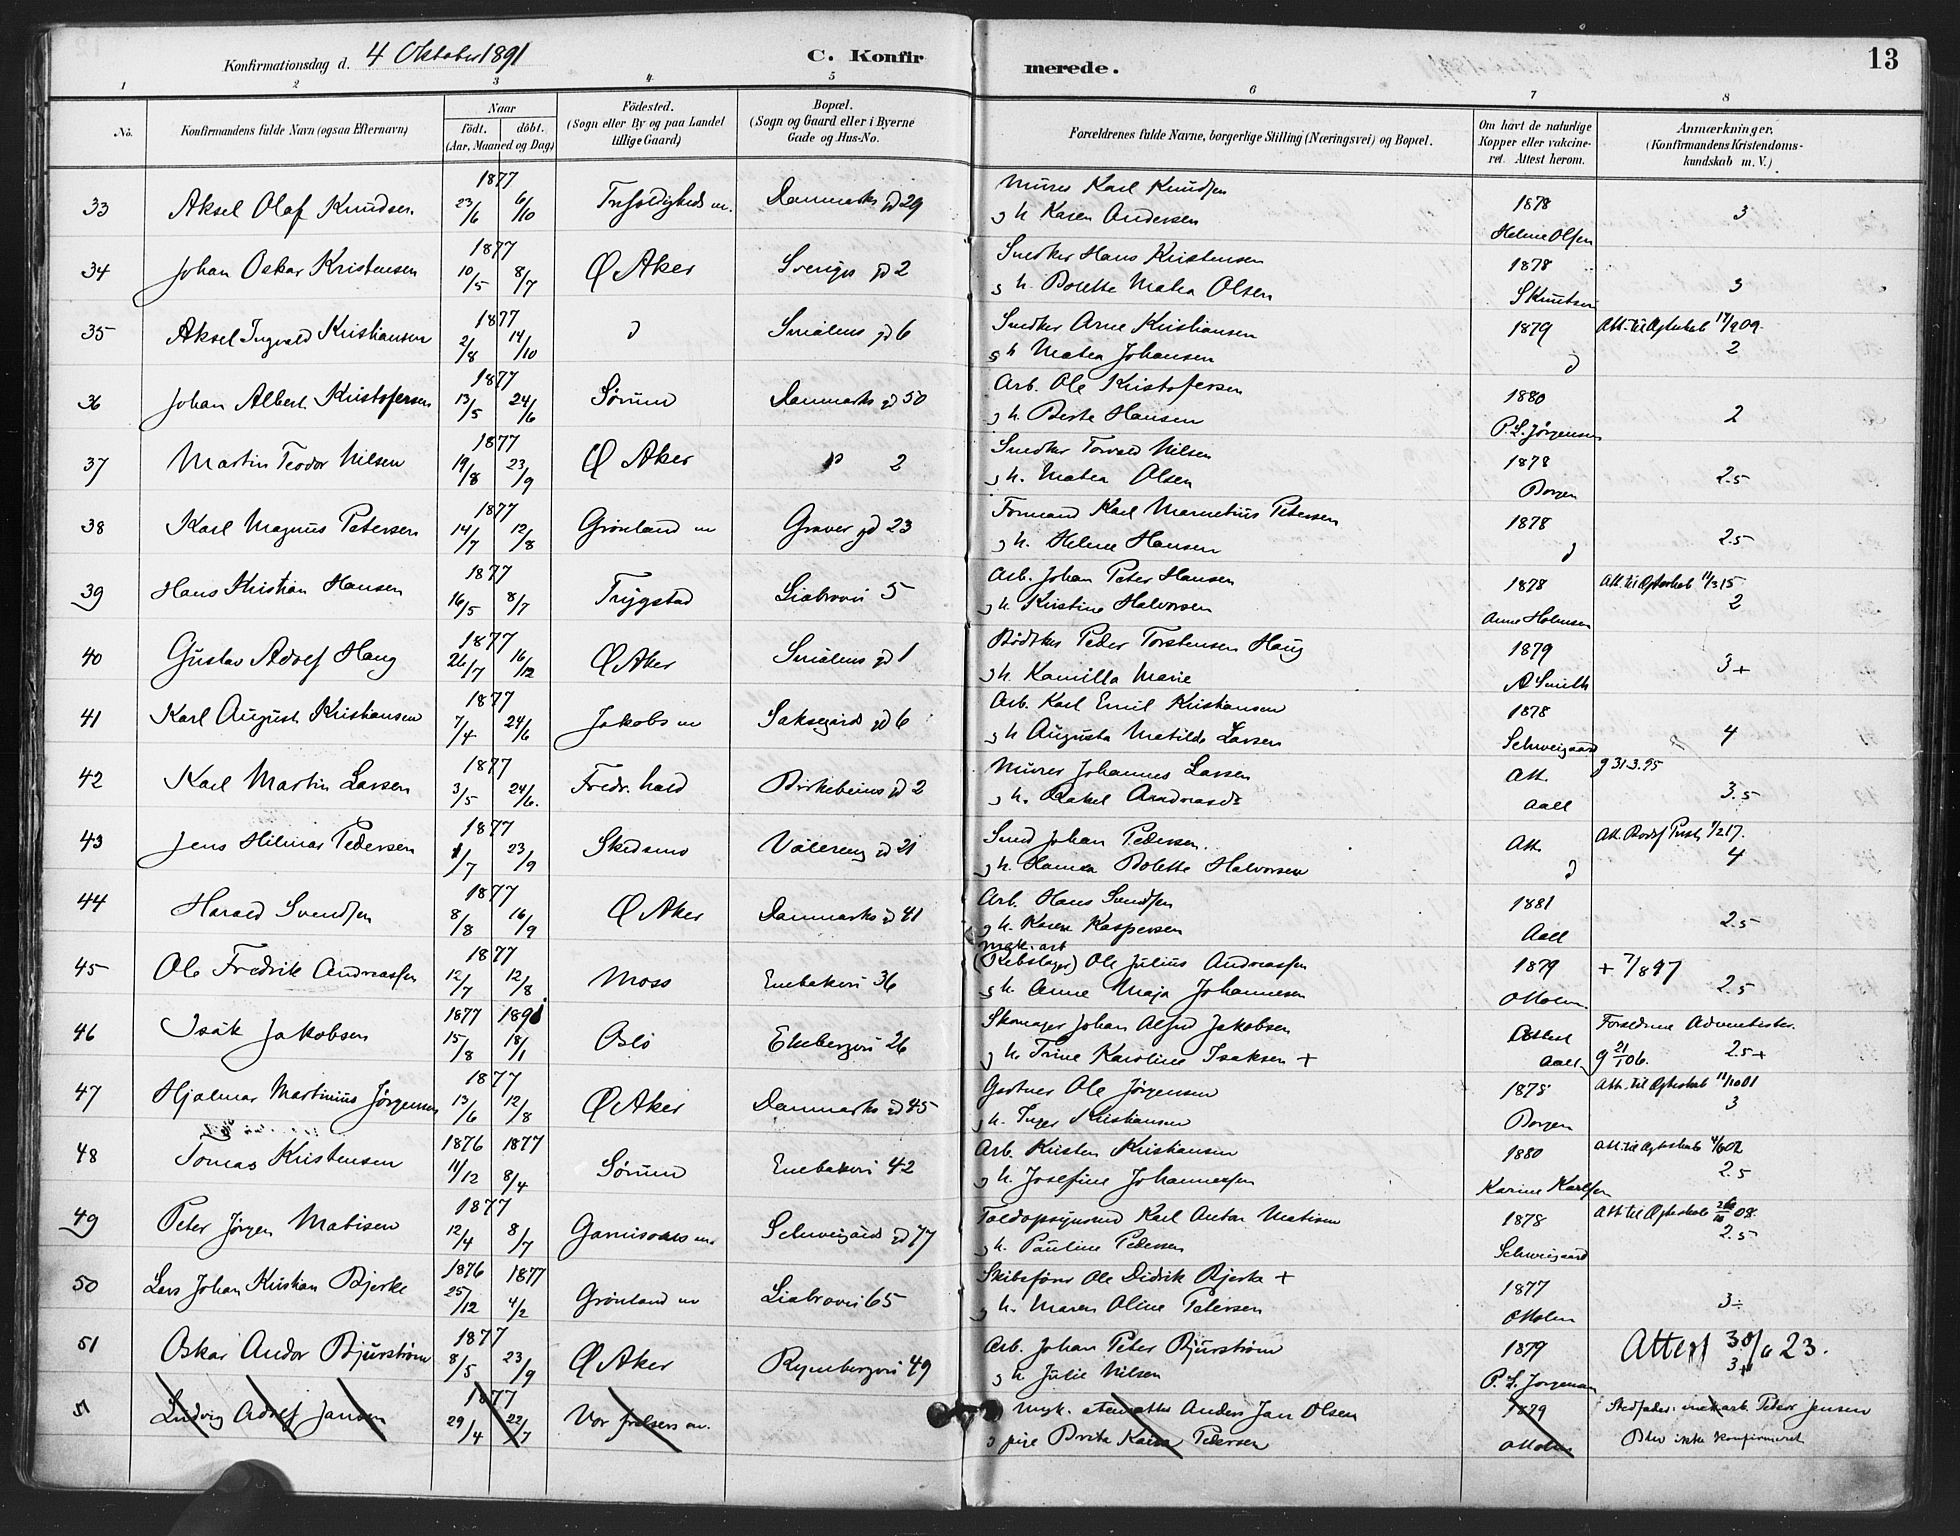 Konfirmationsdag d. 4 Oktober 1891
C. Konfirmerede.
13
1 2 3 4 5 6 7 8
No.
Konfirmandens fulde Navn (ogsaa Efternavn)
Naar
födt. döbt.
(Aar, Maaned og Dag)
Födested.
(Sogn eller By og paa Landet
tillige Gaard)
Bopæl.
(Sogn og Gaard eller i Byerne
Gade og Hus-No.
Forældrenes fulde Navne, borgerlige Stilling (Næringsvei) og Bopæl.
Om havt de naturlige
Kopper eller vakcineret. Attest herom.
Anmærkninger,
(Konfirmandens Kristendomskundskab m. V.)
33 Aksel Olaf Knudsen 1877 23/6 6/10 Trefoldigheds m. Danmarks gd 29 Murer Karl Knudsen 1878
g h Karen Andersen Helene Olsen 3
34 Johan Oskar Kristensen 1877 10/5 8/7 Ø Aker Sveriges gd 2 Snedker Hans Kristensen 1878
g h. Bolette Matea Olsen S Knutsen 3
35 Aksel Ingvald Kristiansen 1877 2/8 14/10 d Smålens gd 6 Snedker Arne Kristiansen 1879 Att. til Ægteskab 17/9 09.
g h Matea Johansen d 2
36 Johan Albert Kristofersen 1877 13/5 24/6 Sørum Danmarks gd 50 Arb. Ole Kristofersen 1880
g h. Berte Hansen P. L. Jørgensen 2
37 Martin Teodor Nilsen 1877 19/8 23/9 Ø Aker 2 Snedker Torvald Nilsen 1878
g h. Matea Olsen Borgen 2.5
38 Karl Magnus Petersen 1877 14/7 12/8 Grønland m Graver gd 23 Formand Karl Petersen 1878
g h. Helene Hansen d 2.5
39 Hans Kristian Hansen 1877 16/5 8/7 Trygstad Liabrovei 5 Arb. Johan Peter Hansen 1878 Att. til Ægteskab 11/3 15
g h Kristine Halvorsen Anne Holmsen 2
40 Gustav Adolf Haug 1877 26/7 16/12 Ø Aker Smålens gd 1 Bødtker Peder Torstensen Haug 1879
g h. Kamilla Marie A Smith 3+
41 Karl August Kristiansen 1877 7/4 24/6 Jakobs m Saksegårds gd 6 Arb. Karl Emil Kristiansen 1878
g h Augusta Matilde Larsen Schweigaard 4
42 Karl Martin Larsen 1877 3/5 24/6. Fredr.hald Birkebeins gd 2 Murer Johannes Larsen Att. g 31 3.95
g h. Rakel Aall 3.5
43 Jens Hilmar Pedersen 1877 1/7 23/9 Skedsmo Vålereng gd 21 Smed Johan Pedersen. Att. 1/2 17.
g h. Bolette Halvorsen d 4
44 Harald Svendsen 1877 8/8 16/9 Ø Aker Danmarks gd 41 Arb. Hans Svendsen 1881
g h. Karen Kaspersen Aall 2.5
45 Ole Fredrik Andreassen 1877 12/7 12/8 Moss Enebakvei 36 (Rebslager) Ole Julius Andreassen 1879 + 7/8 97
g h. Anne Maja Johannesen O Holm 2.5
46 Isåk Jakobsen 1877 1891 15/8 18/1 Oslo Ekebergvei 26 Skomager Johan Alfred Jakobsen Attest Forældrene Adventister.
g h. Trine Karoline Isaksen + Aall g 21/1 06. 2.5+
47 Hjalmar Martinius Jørgensen 1877 13/6 12/8 Ø Aker Danmarks gd 45 Gartner Ole Jørgensen 1878 Att. til Ægteskab 11/10 01
g h. Inger Kristiansen Borgen 3
48 Tomas Kristensen 1876 1877 11/12 8/4 Sørum Enebakvei 42 Arb. Kristen Kristiansen 1880 Att. til Ægteskab 4/6 02
g h. Josefine Johannessen Karine Karlsen 2.5
49 Peter Jørgen Matisen 1877 12/4 8/7 Garnisons m Schweigaards gd 77 Toldopsynsmd Karl Anton Matisen 1878 Att til Ægteskab 26/10 08.
g h. Pauline Pedersen Schweigaard 2.5
50 Lars Johan Kristian Bjerke 1876 1877 25/12 4/2 Grønland m Liabrovei 65 Skibsfører Ole Didrik Bjerke + 1877
g h. Maren Oline Petersen O Holm 3÷
51 Oskar Andor Bjurstrøm 1877 8/5 23/9 Ø Aker Rymbergvei 49 Arb. Johan Peter Bjurstrøm 1879 Attest 30/6 23.
g h Julie Nilsen P. L. Jørgensen 3+
51 Ludvig Adolf Jansen 1877 29/4 22/7 Vor frelsers m. Ungk. Anders Jan Olsen 1879 Stedfader: Peder Jensen
g pige Brita Kaisa Pedersen O Holm Blev ikke konfirmeret